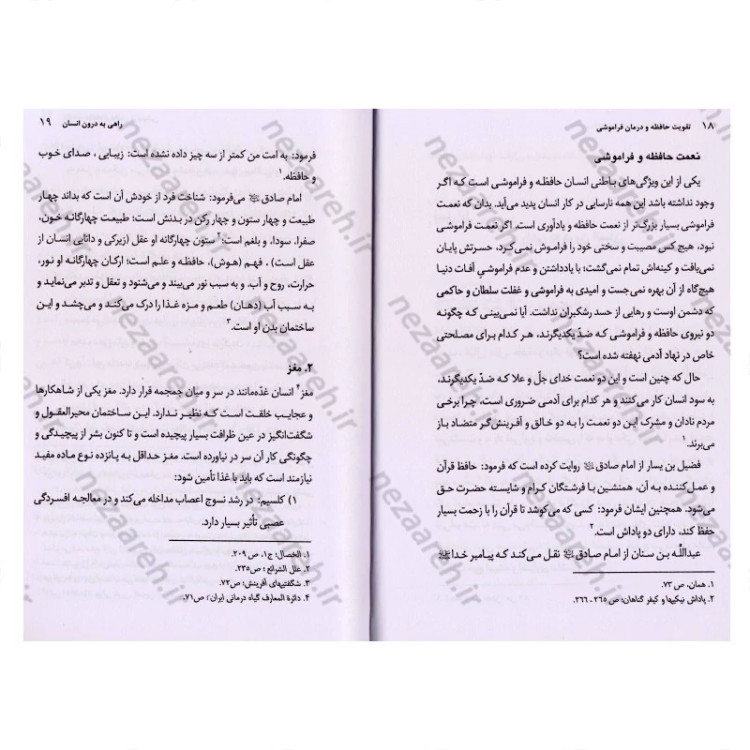 ۱۸ تقویت حافظه و درمان فراموشی
نعمت حافظه و فراموشی
یکی از این ویژگی‌های باطنی انسان حافظه و فراموشی است که اگر
وجود نداشته باشد این همه نارسایی در کار انسان پدید می‌آید. بدان که نعمت
فراموشی بسیار بزرگ‌تر از نعمت حافظه و یادآوری است. اگر نعمت فراموشی
نبود، هیچ کس مصیبت و سختی خود را فراموش نمی‌کرد، حسرتش پایان
نمی‌یافت و کینه‌اش تمام نمی‌گشت؛ با یادداشتن و عدم فراموشی آفات دنیا
هیچ‌گاه از آن بهره نمی‌جست و امیدی به فراموشی و غفلت سلطان و حاکمی
که دشمن اوست و رهایی از حسد رشگبران نداشت. آیا نمی‌بینی که چگونه
دو نیروی حافظه و فراموشی که ضدّ یکدیگرند، هر کدام برای مصلحتی
خاص در نهاد آدمی نهفته شده است؟
حال که چنین است و این دو نعمت خدای جلّ و علا که ضدّ یکدیگرند،
به سود انسان کار می‌کنند و هر کدام برای آدمی ضروری است، چرا برخی
مردم نادان و مشرک این دو نعمت را به دو خالق و آفرینش‌گر متضاد باز
می‌برند.۱
فضیل بن یسار از امام صادق روایت کرده است که فرمود: حافظ قرآن
و عمل‌کننده به آن، همنشین با فرشتگان کرام و شایسته حضرت حق
می‌شود. همچنین ایشان فرمود: کسی که می‌کوشد تا قرآن را با زحمت بسیار
حفظ کند، دارای دو پاداش است.۲
عبدالله بن سنان از امام صادق نقل می‌کند که پیامبر خدا
۱. همان، ص ۷۳.
۲. پاداش نیکیها و کیفر گناهان؛ ص ۲۶۵ ـ ۲۶۶.
راهی به درون انسان ۱۹
فرمود: به امت من کمتر از سه چیز داده نشده است: زیبایی، صدای خوب
و حافظه.۱
امام صادق می‌فرمود: شناخت فرد از خودش آن است که بداند چهار
طبیعت و چهار ستون و چهار رکن در بدنش است؛ طبیعت چهارگانه خون،
صفرا، سودا، و بلغم است؛۲ ستون چهارگانه او عقل (زیرکی و دانایی انسان از
عقل است)، فهم (هوش)، حافظه و علم است؛ ارکان چهارگانه او نور،
حرارت، روح و آب. و به سبب نور می‌بیند و می‌شنود و تعقل و تدبر می‌نماید و
به سبب آب (دهان) طعم و مزه غذا را درک می‌کند و می‌چشد و این
ساختمان بدن او است.۳
۲. مغز
مغز۴ انسان غدّه‌مانند در سر و میان جمجمه قرار دارد. مغز یکی از شاهکارها
و عجایب خلقت است که نظیر ندارد. این ساختمان محیرالعقول و
شگفت‌انگیز در عین ظرافت بسیار پیچیده است و تا کنون بشر از پیچیدگی و
چگونگی کار آن سر در نیاورده است. مغز حداقل به پانزده نوع ماده مفید
نیازمند است که باید با غذا تأمین شود:
۱) کلسیم: در رشد نسوج اعصاب مداخله می‌کند و در معالجه افسردگی
عصبی تأثیر بسیار دارد.
۱. الخصال؛ ج۱، ص ۲۰۹.
۲. علل الشرائع؛ ص۲۳۵.
۳. شگفتیهای آفرینش؛ ص۷۲.
۴. دائرة المعارف گیاه درمانی ایران؛ ص۷۱.
nezaareh.ir
nezaareh.ir
nezaareh.ir
nezaareh.ir
nezaareh.ir
nezaareh.ir